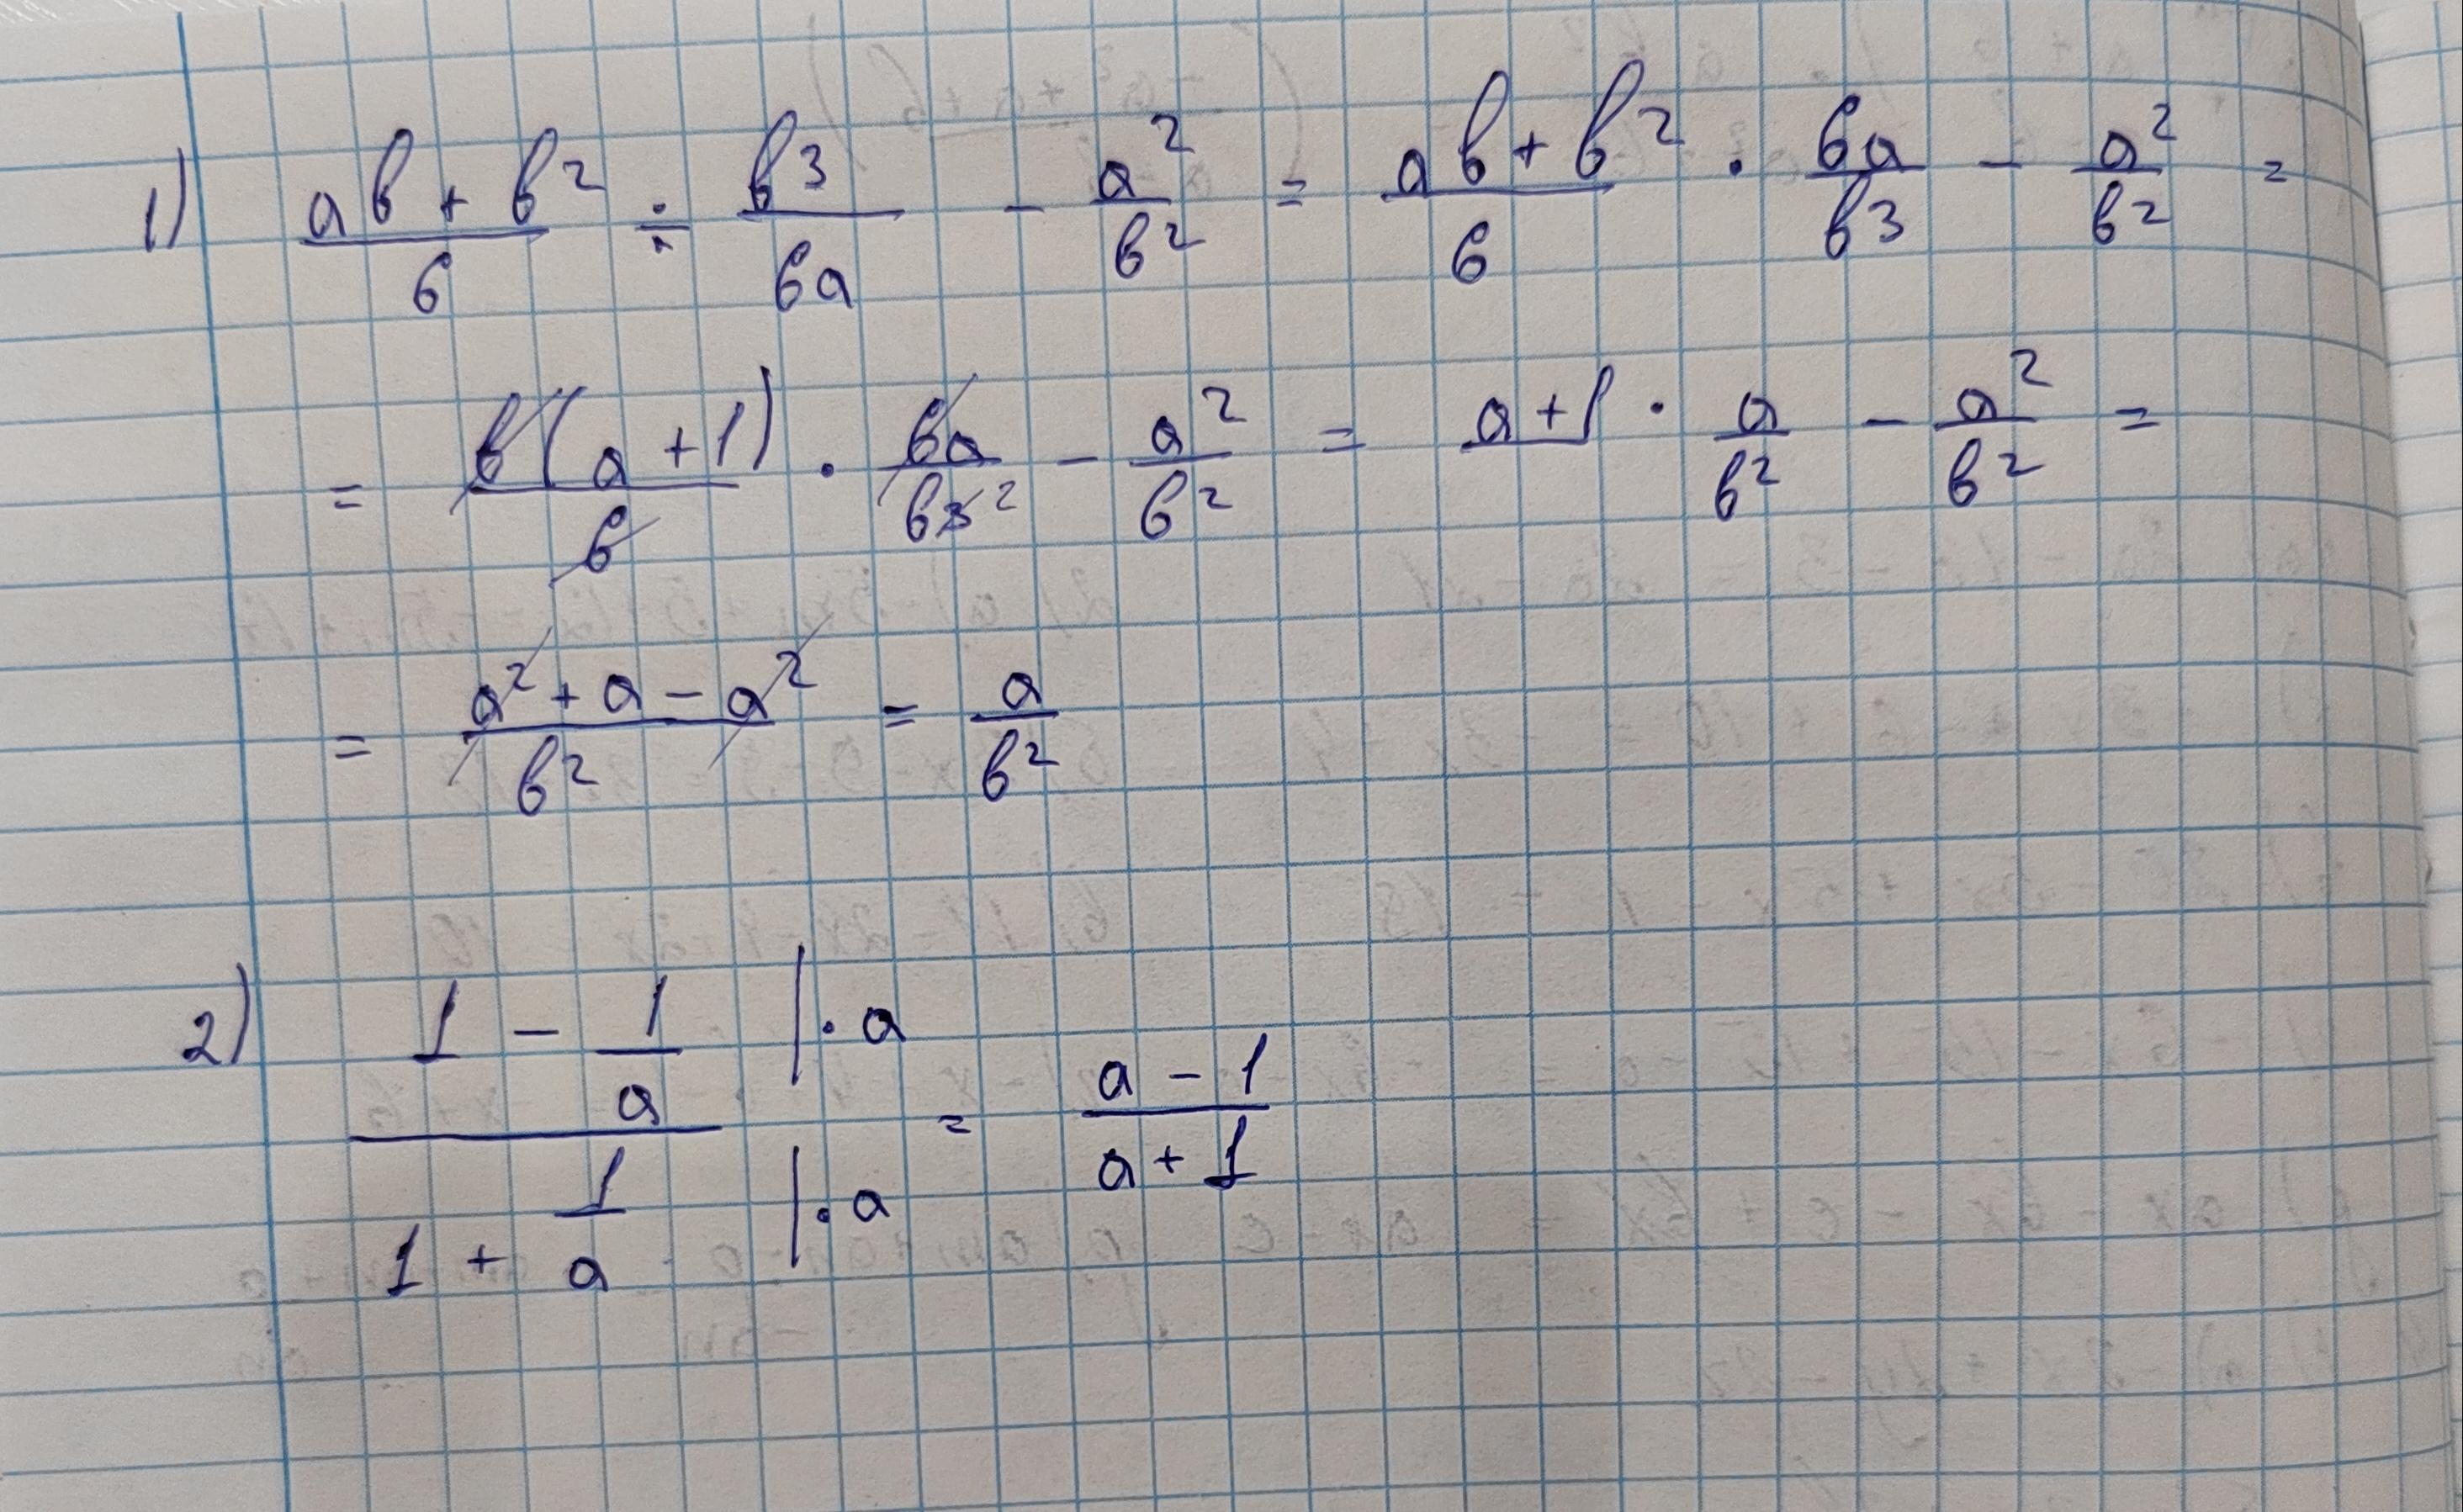 1) (ab + b²)/6 ÷ b³/6a - a²/b² = (ab + b²)/6 · 6a/b³ - a²/b² =
= b(a + 1)/6 · 6a/b³ ² - a²/b² = a + 1 · a/b² - a²/b² =
= (a² + a - a²)/b² = a/b²
2) (1 - 1/a)/(1 + 1/a) |· a |· a = (a - 1)/(a + 1)